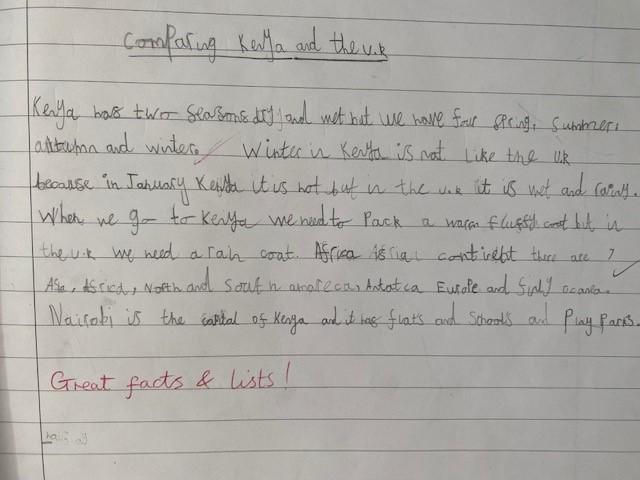 Comparing Kenya and the u.k
Kenya has two seasons dry and wet but we have four spring, summer,
autumn and winter. Winter in Kenya is not like the uk
because in January Kenya it is hot but in the u.k it is wet and rainy.
When we go to Kenya we need to pack a warm fluffy coat but in
the u.k we need a rain coat. Africa is a continent there are 7
Asia, Africa, North and South amareca, Antatca Europe and finly oceania.
Nairobi is the capital of Kenya and it has flats and schools and play parks.
Great facts & lists!